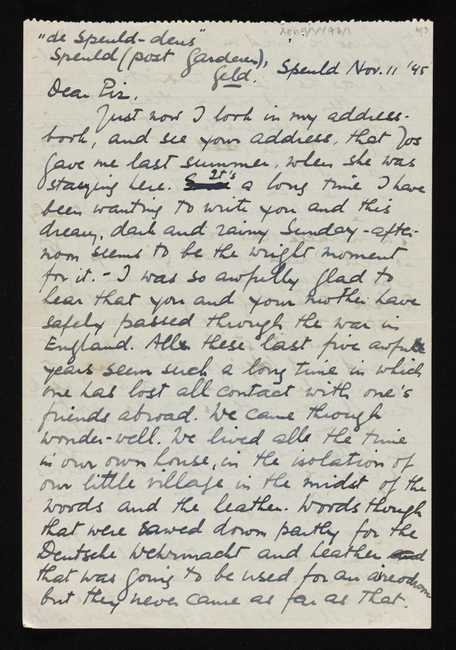 "de Speuld-dens"
Speuld (post Garderen),
Geld. Speuld Nov. 11 '45
Dear Piz,
Just now I look in my address-
book, and see your address, that Jos
gave me last summer, when she was
staying here. It's a long time I have
been wanting to write you and this
dreary, dark and rainy Sunday-after-
noon seems to be the wright moment
for it. - I was so awfully glad to
hear that you and your mother have
safely passed through the war in
England. Alle these last five awful
years seem such a long time in which
one has lost all contact with one's
friends abroad. We came through
wonder-well. We lived alle the time
in our own house, in the isolation of
our little village in the midst of the
woods and the heather. Woods though
that were sawed down partly for the
Deutsche Wehrmacht and heather
that was going to be used for an aireodrom
but they never came as far as that.